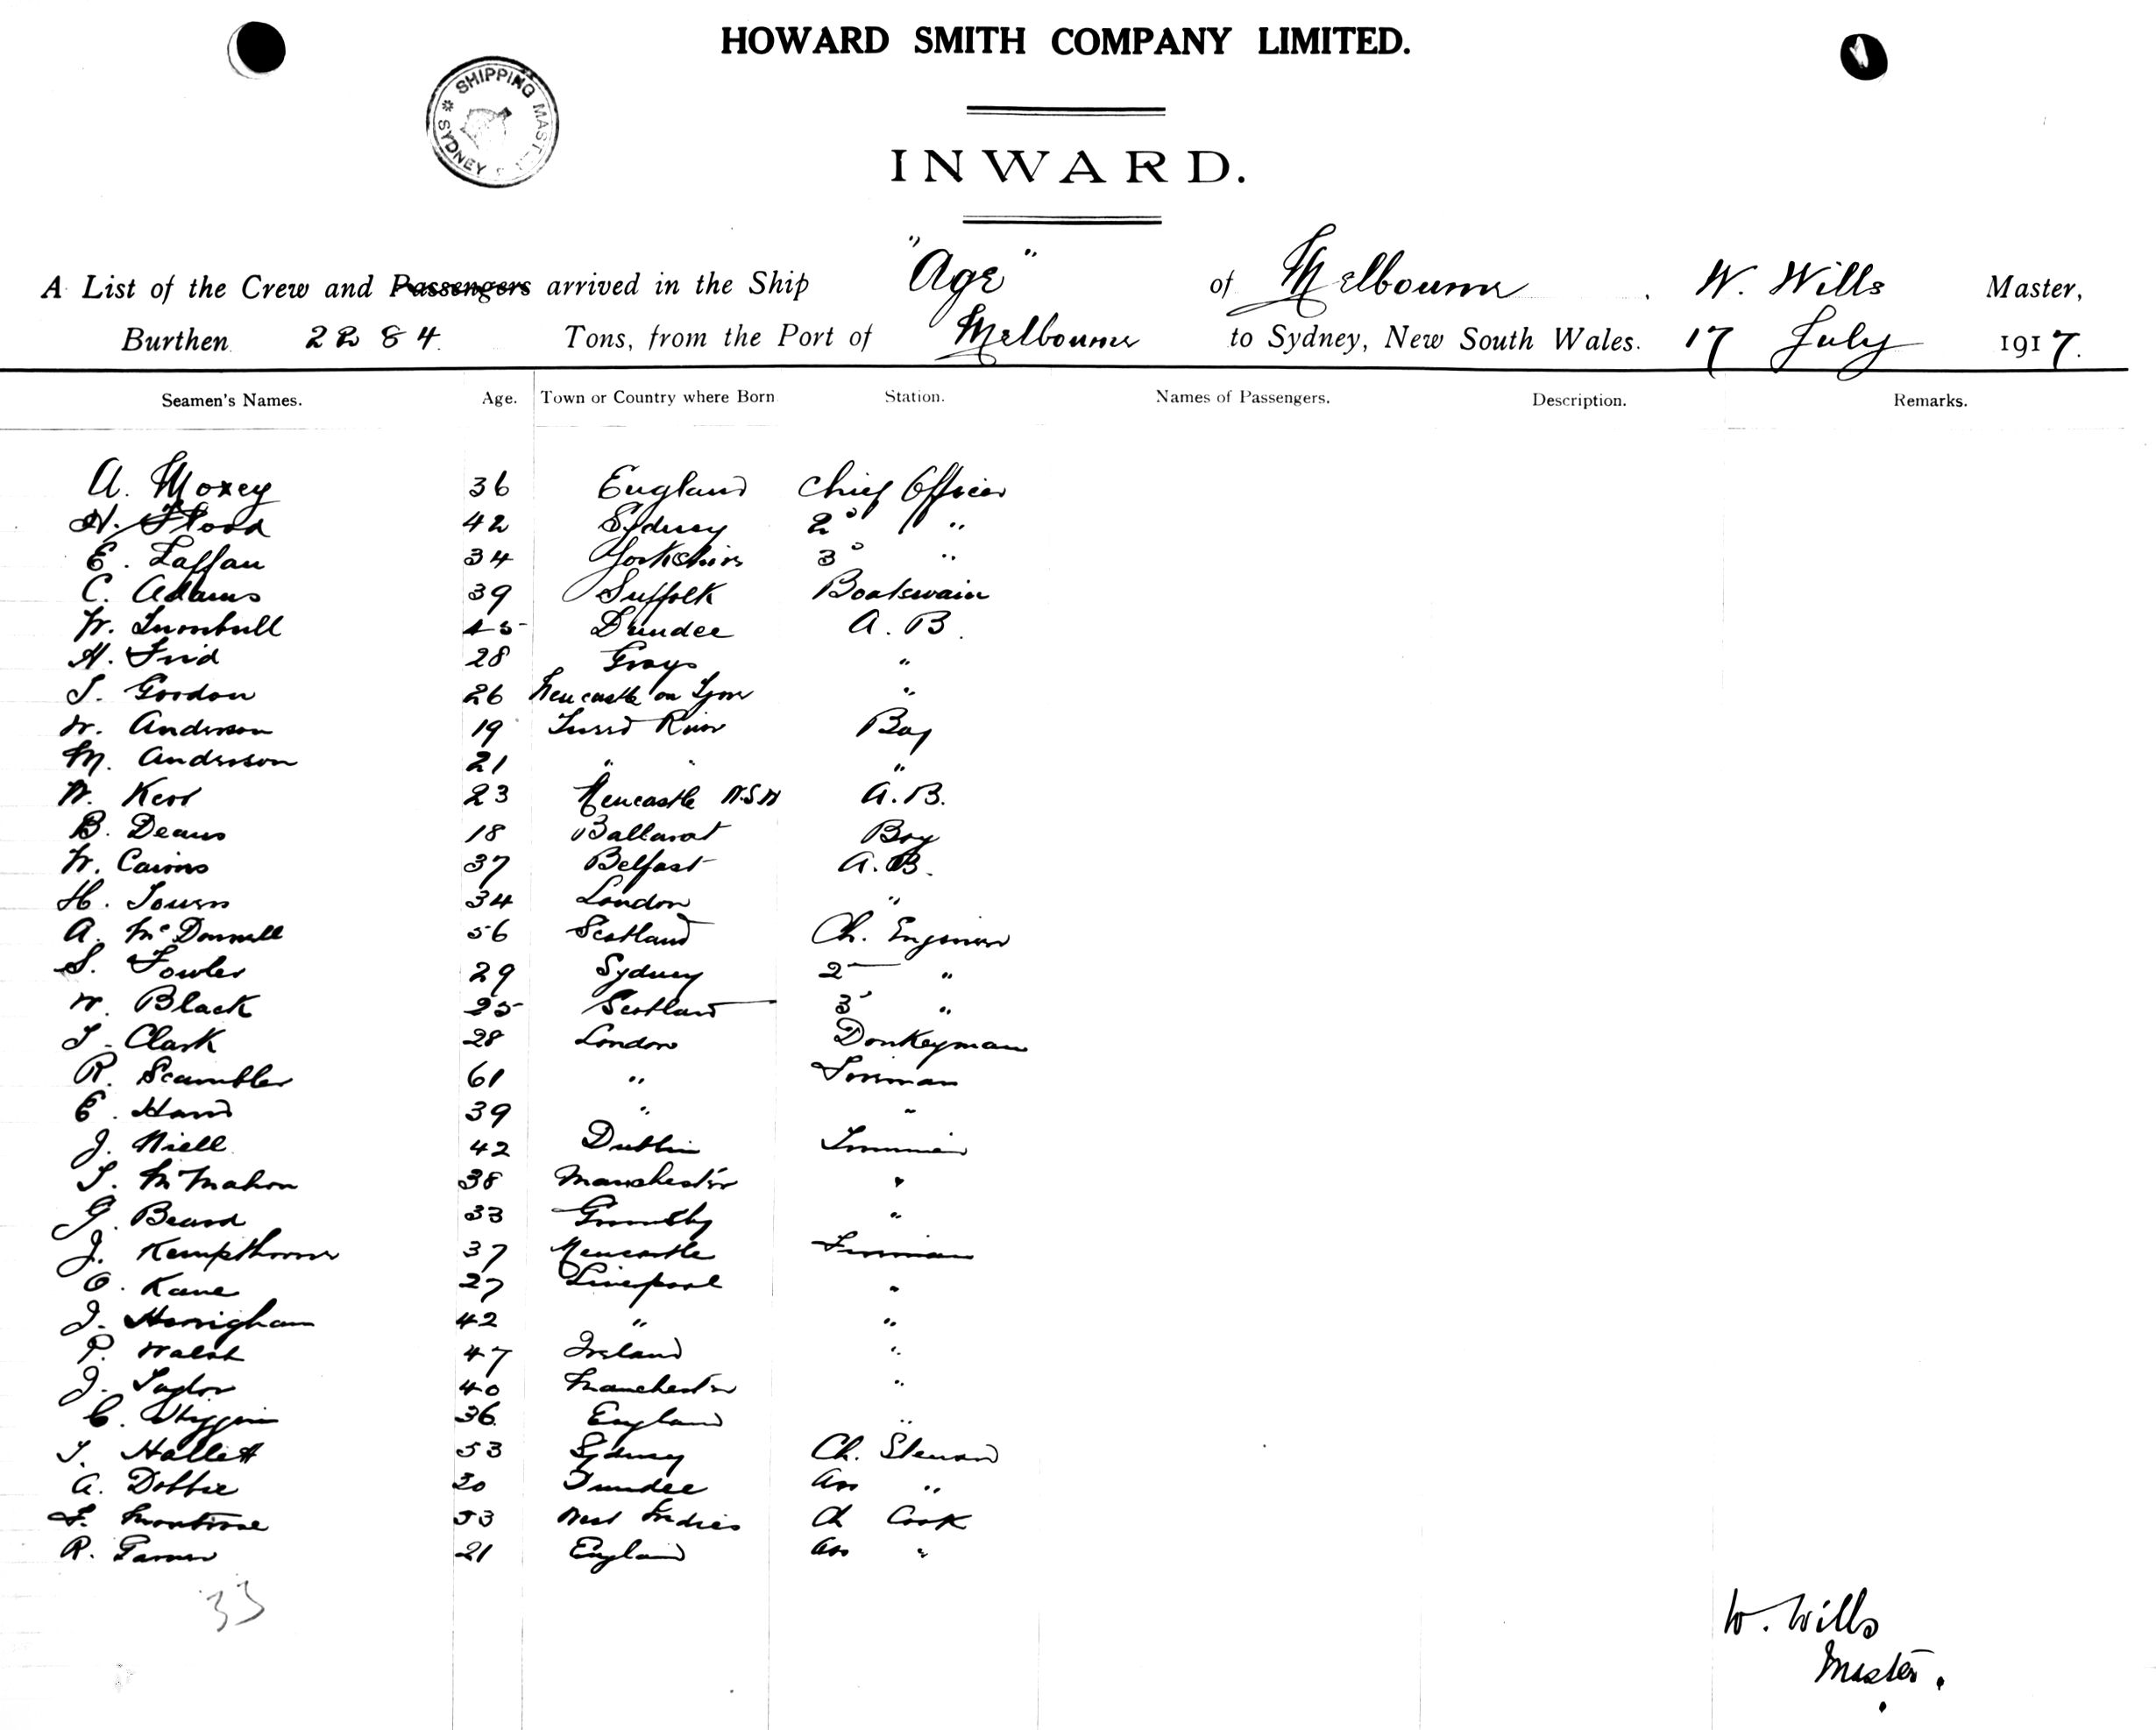 HOWARD SMITH COMPANY LIMITED.
SHIPPING MAST SYDNEY
INWARD.
A List of the Crew and Passengers arrived in the Ship "Age" of Melbourne W. Wills Master,
Burthen 2284 Tons, from the Port of Melbourne to Sydney, New South Wales. 17 July 1917.
Seamen's Names. Age. Town or Country where Born Station. Names of Passengers. Description. Remarks.
A. Moxey 36 England Chief Officer
H. Flood 42 Sydney 2° "
E. Laffan 34 Yorkshire 3° "
C. Adams 39 Suffolk Boatswain
W. Turnbull 45 Dundee A. B.
H. Frid 28 Grays "
T. Gordon 26 Newcastle on Tyne "
W. Anderson 19 River Boy
M. Anderson 21 " " "
W. Kerr 23 Newcastle N.S.W A. B.
B. Deans 18 Ballarat Boy
W. Cairns 37 Belfast A. B.
H. 34 London "
A. McDonnell 56 Scotland Ch. Engineer
S. Fowler 29 Sydney 2 "
W. Black 25 Scotland 3 "
T. Clark 28 London Donkeyman
R. Scambler 61 " Fireman
E. Hand 39 " "
J. Niell 42 Dublin Trimmer
T. McMahon 38 Manchester "
G. Beard 33 Grimsby "
J. Kempthorne 37 Newcastle Fireman
O. Kane 27 Liverpool "
J. 42 " "
P. Walsh 47 Ireland "
J. Taylor 40 Manchester "
C. 36 England "
T. Hallett 53 Sydney Ch. Steward
A. Dobbie 30 Dundee Ass "
F. Montrose 53 West Indies Ch Cook
R. 21 England Ass "
33
W. Wills
Master.